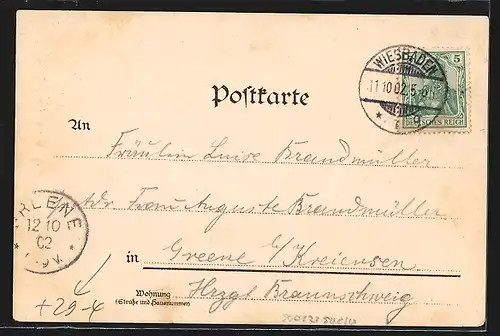 Postkarte
WIESBADEN
11 10 02 5-6N
* 9
5
DEUTSCHES REICH
An
Fräulein Luise Brandmüller
Adr Frau Auguste Brandmüller
in Greene b/Kreiensen
Hrzgt Braunschweig
Wohnung
(Straße und Hausnummer)
GREENE
12 10
02
+29-4